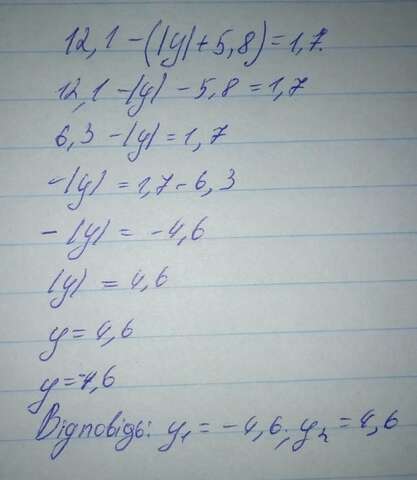 12,1-(|y|+5,8)=1,7.
12,1-|y|-5,8=1,7
6,3-|y|=1,7
-|y|=1,7-6,3
-|y|=-4,6
|y|=4,6
y=4,6
y=-4,6
Відповідь: y₁=-4,6; y₂=4,6